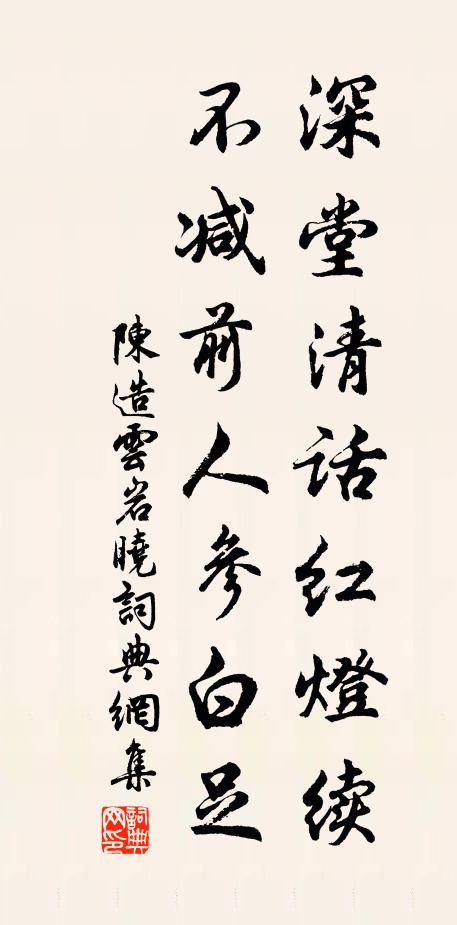 深堂清话红燈续
不减前人參白足
陳造雲岩曉詞典網集
詞典网印